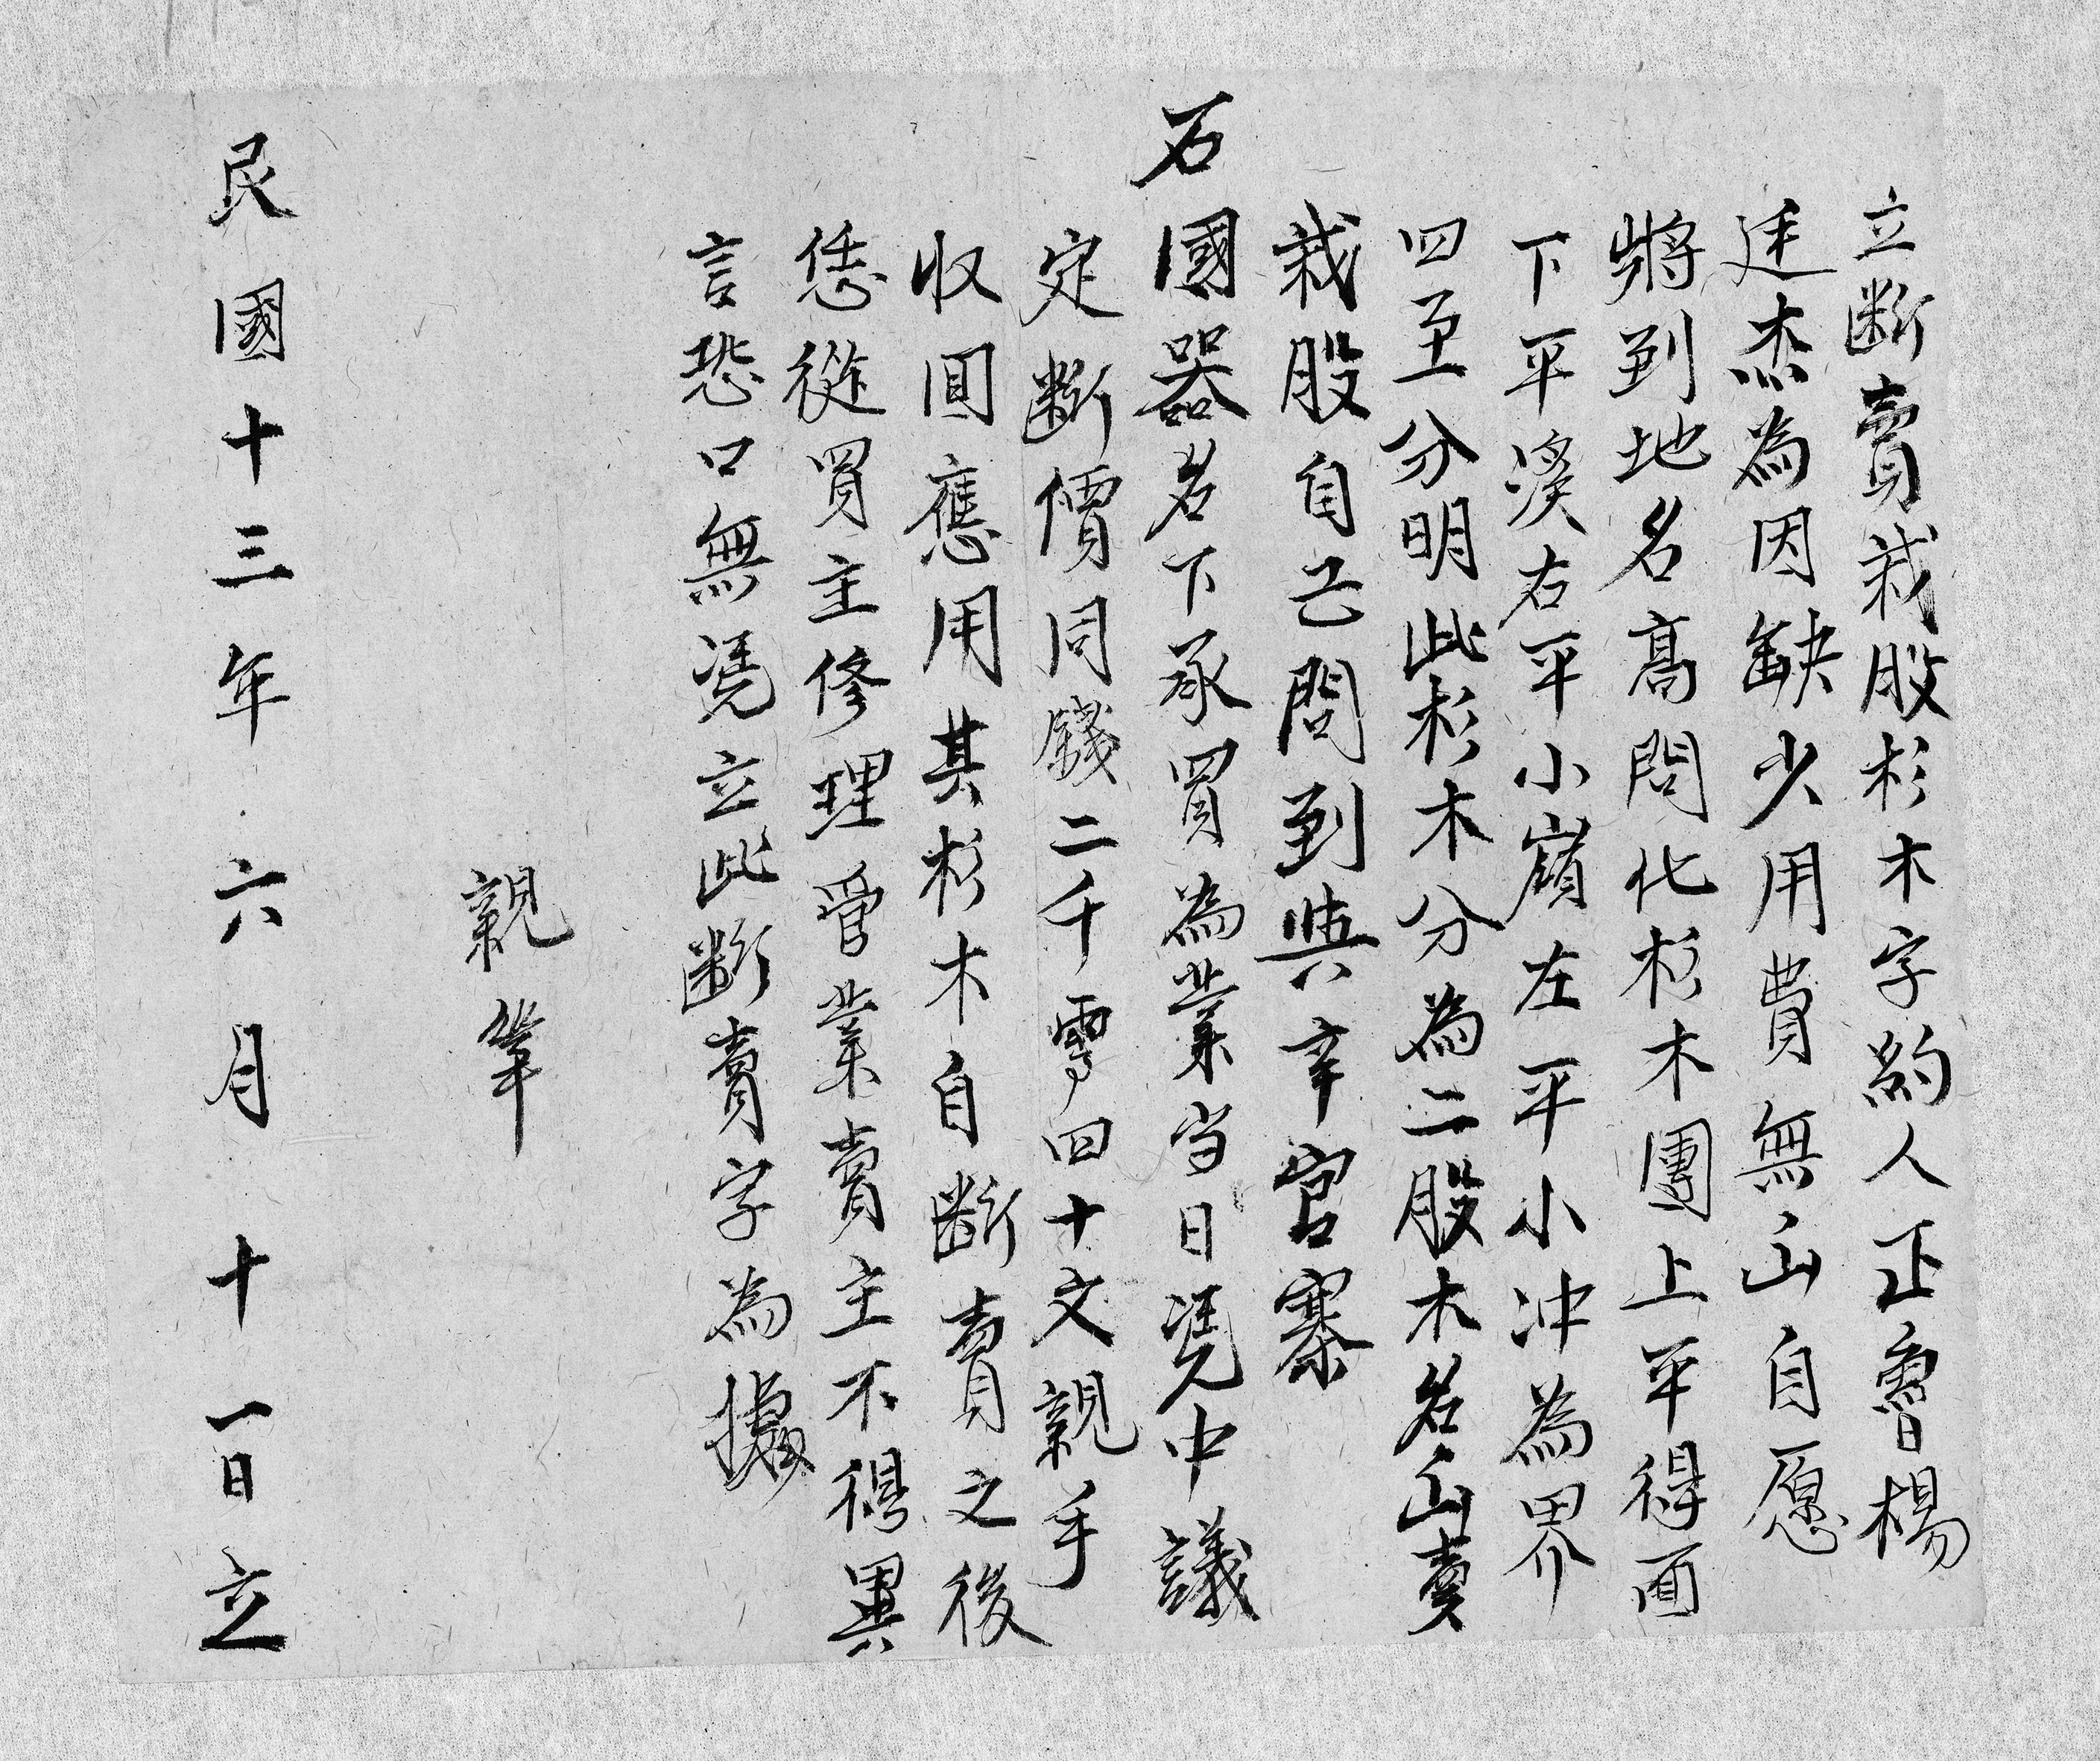 立断賣栽股杉木字約人正魯楊
廷杰為因缺少用費無山自愿
將到地名高問化杉木團上平得面
下平溪右平小嶺左平小冲為界
四至分明此杉木分為二股木名山賣
栽股自己問到典辛官寨
石國器名下承買為業当日凴中議
定断價同錢二千零四十文親手
收圓應用其杉木自断賣之後
恁從買主修理管業賣主不得異
言恐口無凴立此断賣字為據
親筆
民國十三年六月十一日立